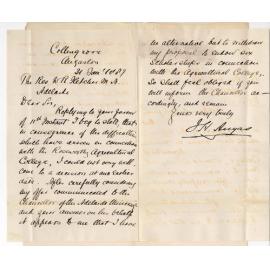 Collingrove
Angaston
21 June 1887
The Rev W. R. Fletcher M.A.
Adelaide
Dear Sir,
Replying to your favour
of 18th Instant I beg to state, that
in consequence of the difficulties
which have arisen in connection
with the Roseworthy Agricultural
College, I could not very well
come to a decision at an earlier
date. After carefully considering
my offer communicated to the
Chancellor of the Adelaide University
and your answer on his behalf
it appears to me that I have
no alternative but to withdraw
my proposal to endow six
Scholarships in connection
with the Agricultural College.
I shall feel obliged if you
will inform the Chancellor ac-
cordingly, and remain
Yours very truly
J. H. Angas